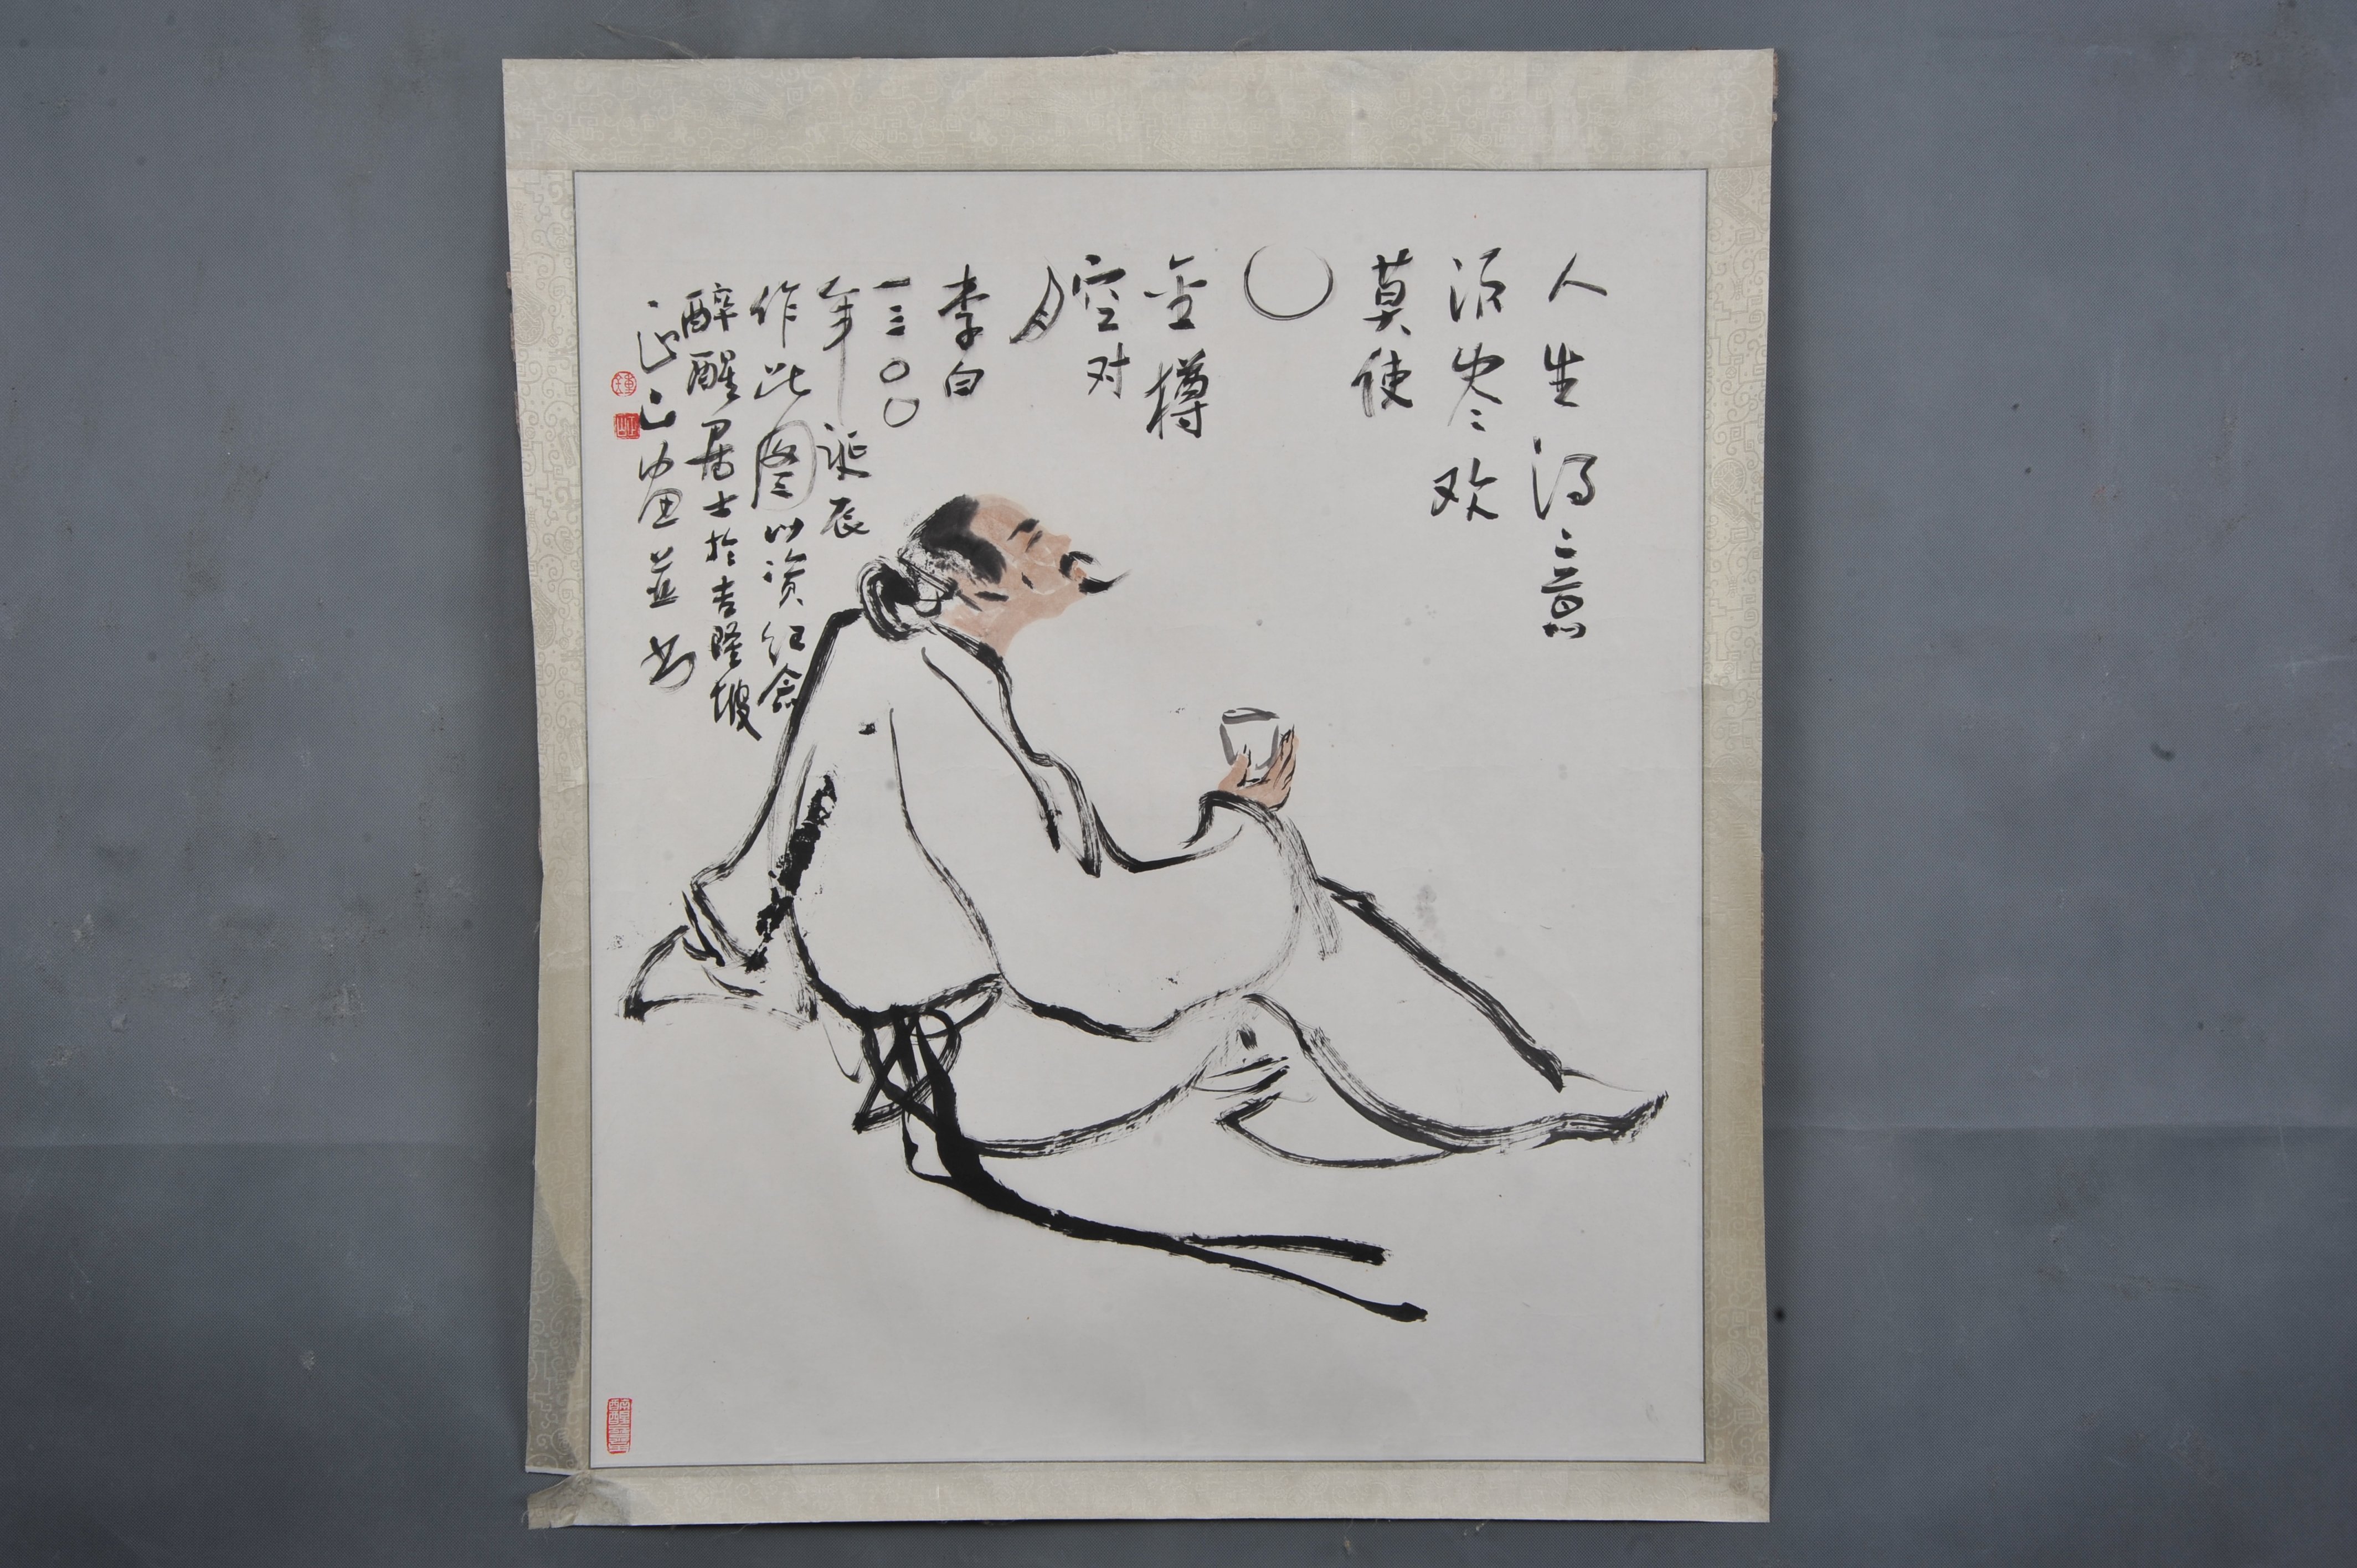 人生得意
须尽欢
莫使
金樽
空对
月
李白
一三〇〇
年诞辰
作此图以资纪念
醉醒居士於吉隆坡
正山画並书